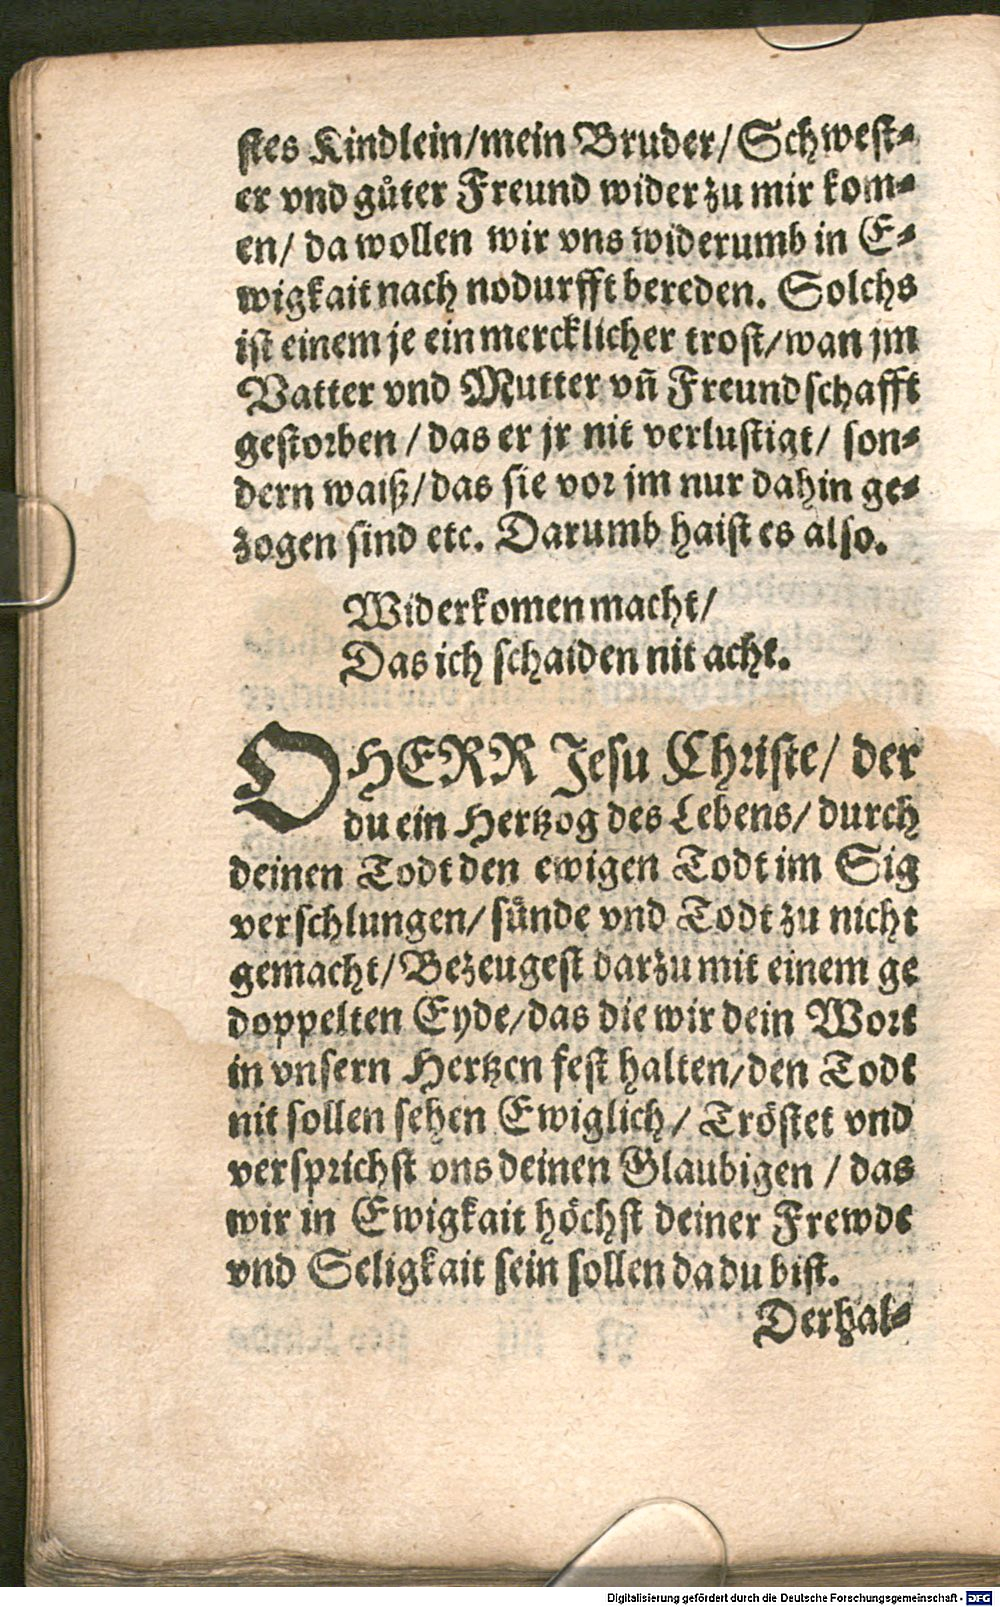 stes Kindlein/mein Bruder/Schwest-
er vnd gůter Freund wider zu mir kom-
en/ da wollen wir vns widerumb in E-
wigkait nach nodurfft bereden. Solchs
ist einem je ein mercklicher trost/wan jm
Vatter vnd Mutter vñ Freundschafft
gestorben / das er jr nit verlustigt/ son-
dern waiß/das sie vor jm nur dahin ge-
zogen sind etc. Darumb haist es also.
Widerkomen macht/
Das ich schaiden nit acht.
O HERR Jesu Christe/ der
du ein Hertzog des Lebens/ durch
deinen Todt den ewigen Todt im Sig
verschlungen/ sünde vnd Todt zu nicht
gemacht/ Bezeugest darzu mit einem ge
doppelten Eyde/das die wir dein Wort
in vnsern Hertzen fest halten/den Todt
nit sollen sehen Ewiglich/ Tröstet vnd
versprichst vns deinen Glaubigen / das
wir in Ewigkait höchst deiner Frewde
vnd Seligkait sein sollen da du bist.
Derhal-
Digitalisierung gefördert durch die Deutsche Forschungsgemeinschaft - DFG